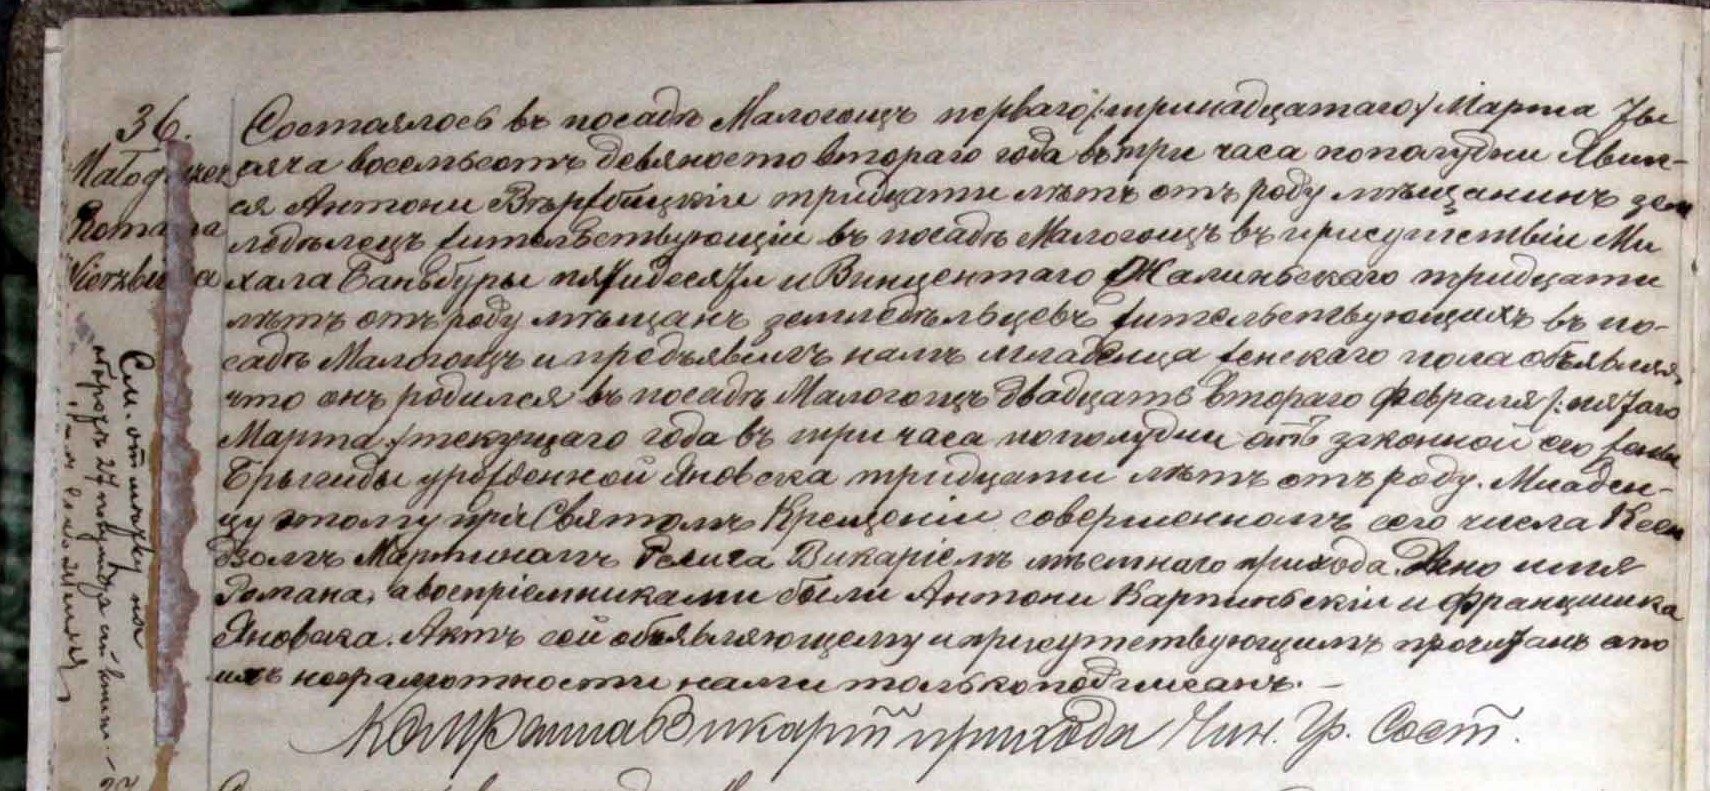 36.
Małogoszcz
Romana
Wierzbicka
Состоялось въ посадѣ Малогощъ перваго /:тринадцатаго:/ Марта Ты
сяча восемьсотъ девяносто втораго года въ три часа пополудни Явил-
ся Антони Вѣрзбицкій тридцати лѣтъ отъ роду мѣщанинъ зем
ледѣлецъ жительствующій въ посадѣ Малогощъ въ присутствіи Ми
хала Баньбуры пятидесяти и Винцентаго Жалиньскаго тридцати
лѣтъ отъ роду мѣщанъ земледѣльцевъ жительствующихъ въ по-
садѣ Малогощъ и предъявилъ намъ младенца женскаго пола объявляя,
что онъ родился въ посадѣ Малогощъ двадцать втораго Февраля /:пятаго
Марта:/ текущаго года въ три часа пополудни отъ законной его жены
Брыгиды урожденной Яновска тридцати лѣтъ отъ роду. Младен-
цу этому при Святомъ Крещеніи совершенномъ сего числа Ксен
дзомъ Мартиномъ Викаріемъ мѣстнаго прихода. Дано имя
Романа, а воспріемниками были Антони Карпиньскій и Францишка
Яновска. Актъ сей объявляющему и присутствующимъ прочитанъ а по
ихъ неграмотности нами только подписанъ. –
Викарій прихода Чин. Гр. Сост.
См. отмѣтку на
оборотѣ 27 сей книги. -